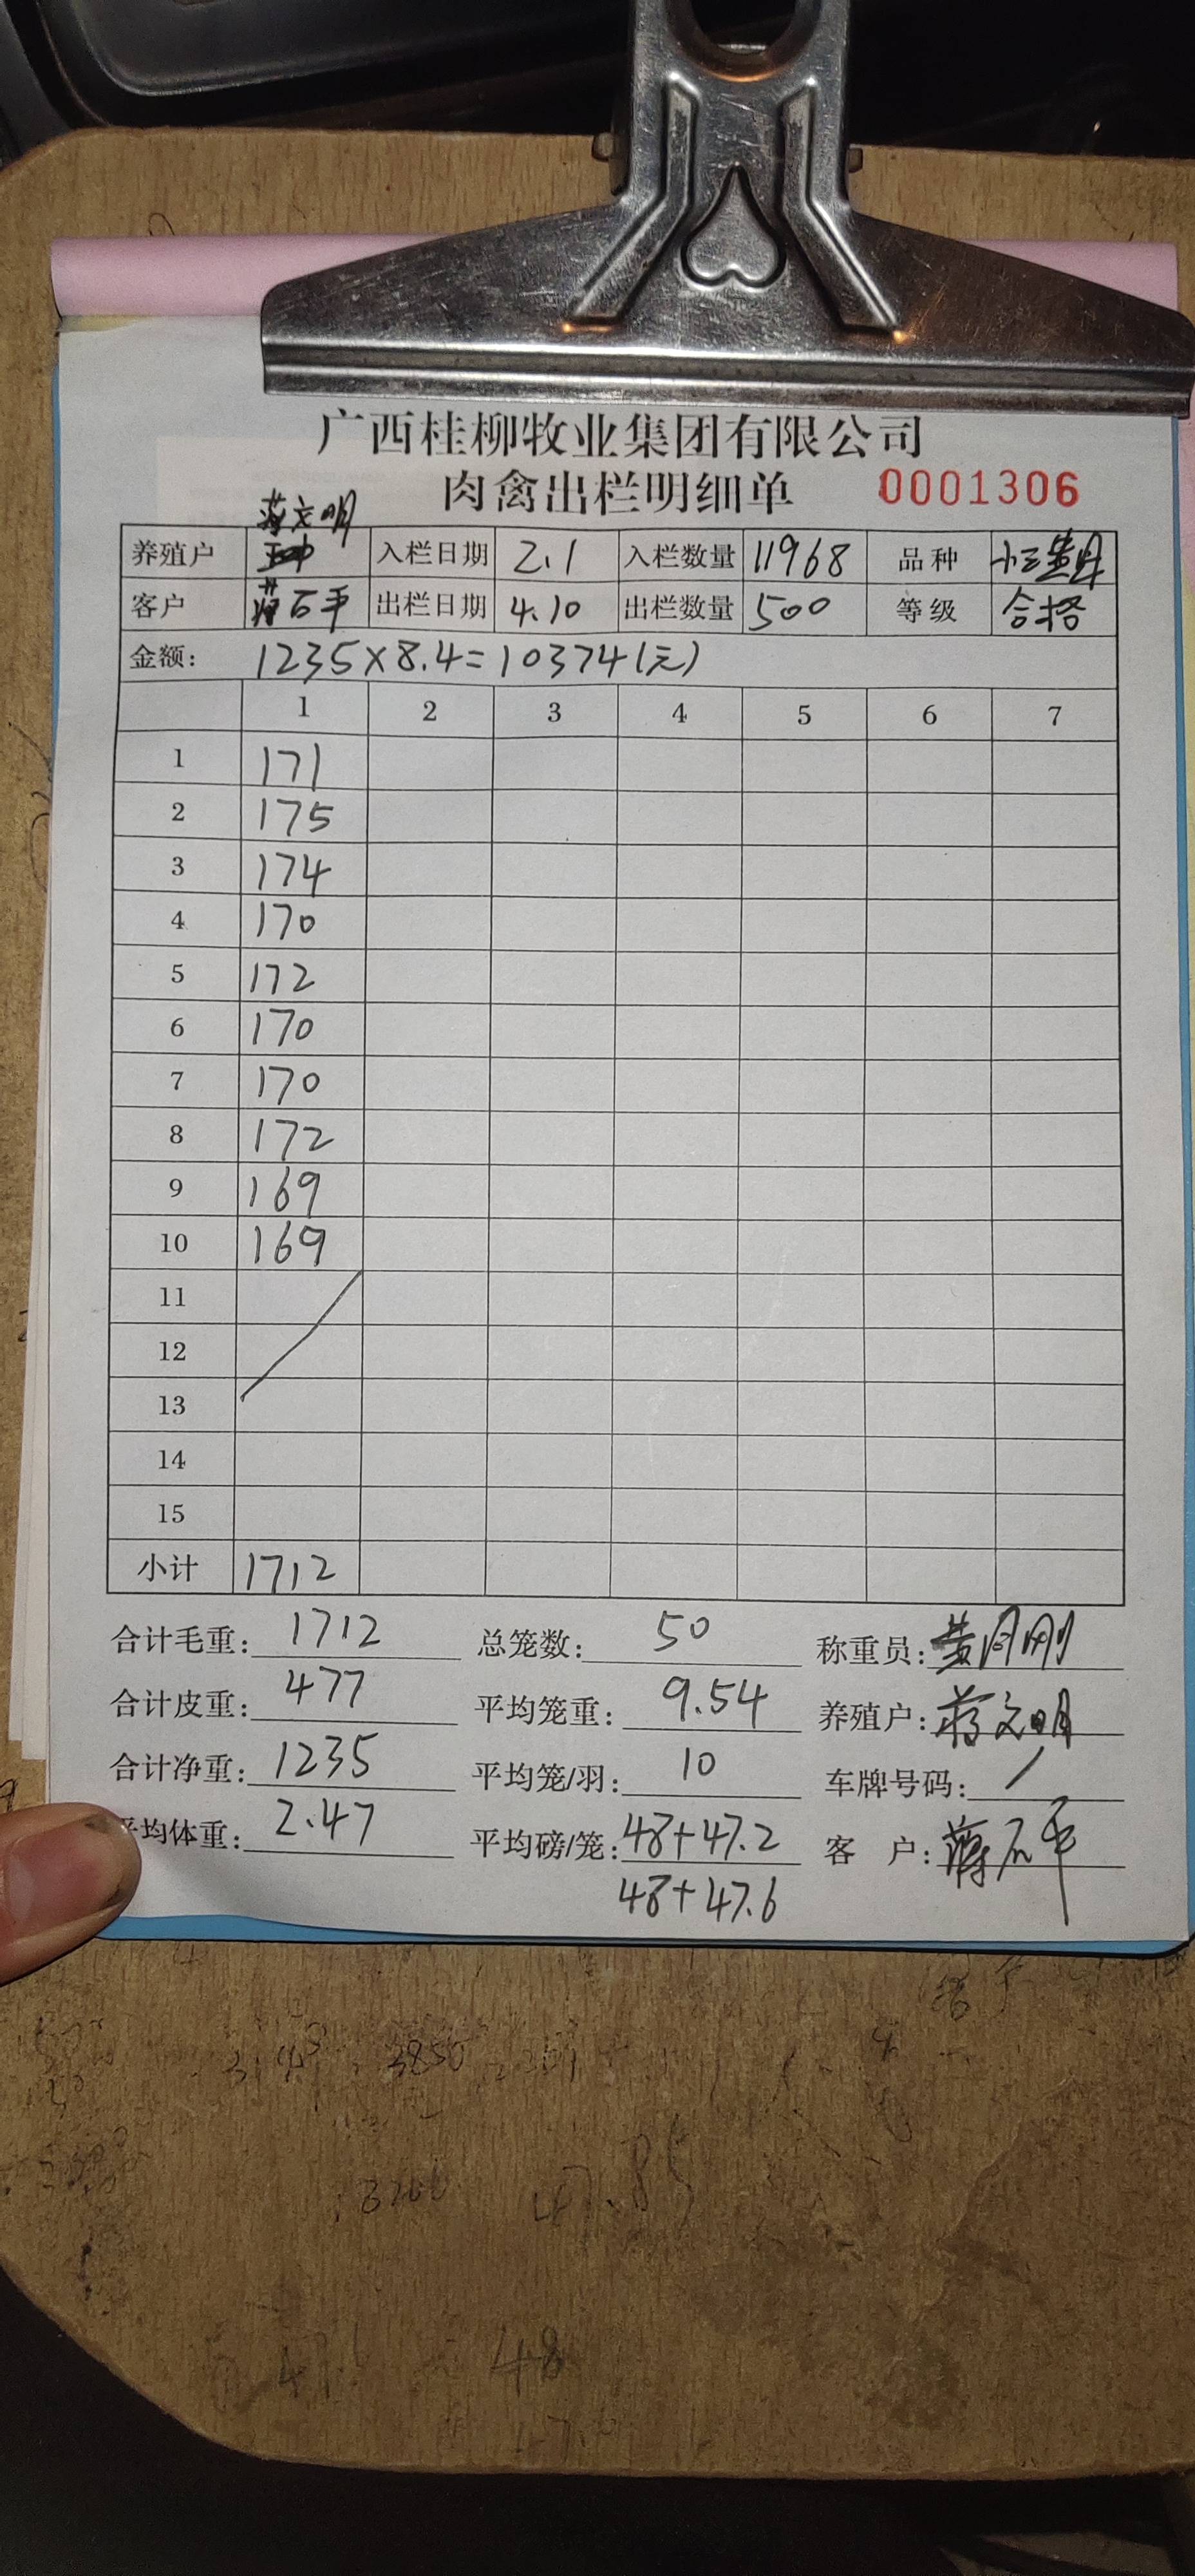 广西桂柳牧业集团有限公司
肉禽出栏明细单 0001306
蒋文明
养殖户 入栏日期 2.1 入栏数量 11968 品种
客户 出栏日期 4.10 出栏数量 500 等级 合格
金额: 1235×8.4=10374(元)
1 2 3 4 5 6 7
1 171
2 175
3 174
4 170
5 172
6 170
7 170
8 172
9 169
10 169
11
12
13
14
15
小计 1712
合计毛重: 1712 总笼数: 50 称重员:
合计皮重: 477 平均笼重: 9.54 养殖户: 蒋文明
合计净重: 1235 平均笼/羽: 10 车牌号码: /
平均体重: 2.47 平均磅/笼: 48+47.2 客 户:
48+47.6
3850
47.85
48